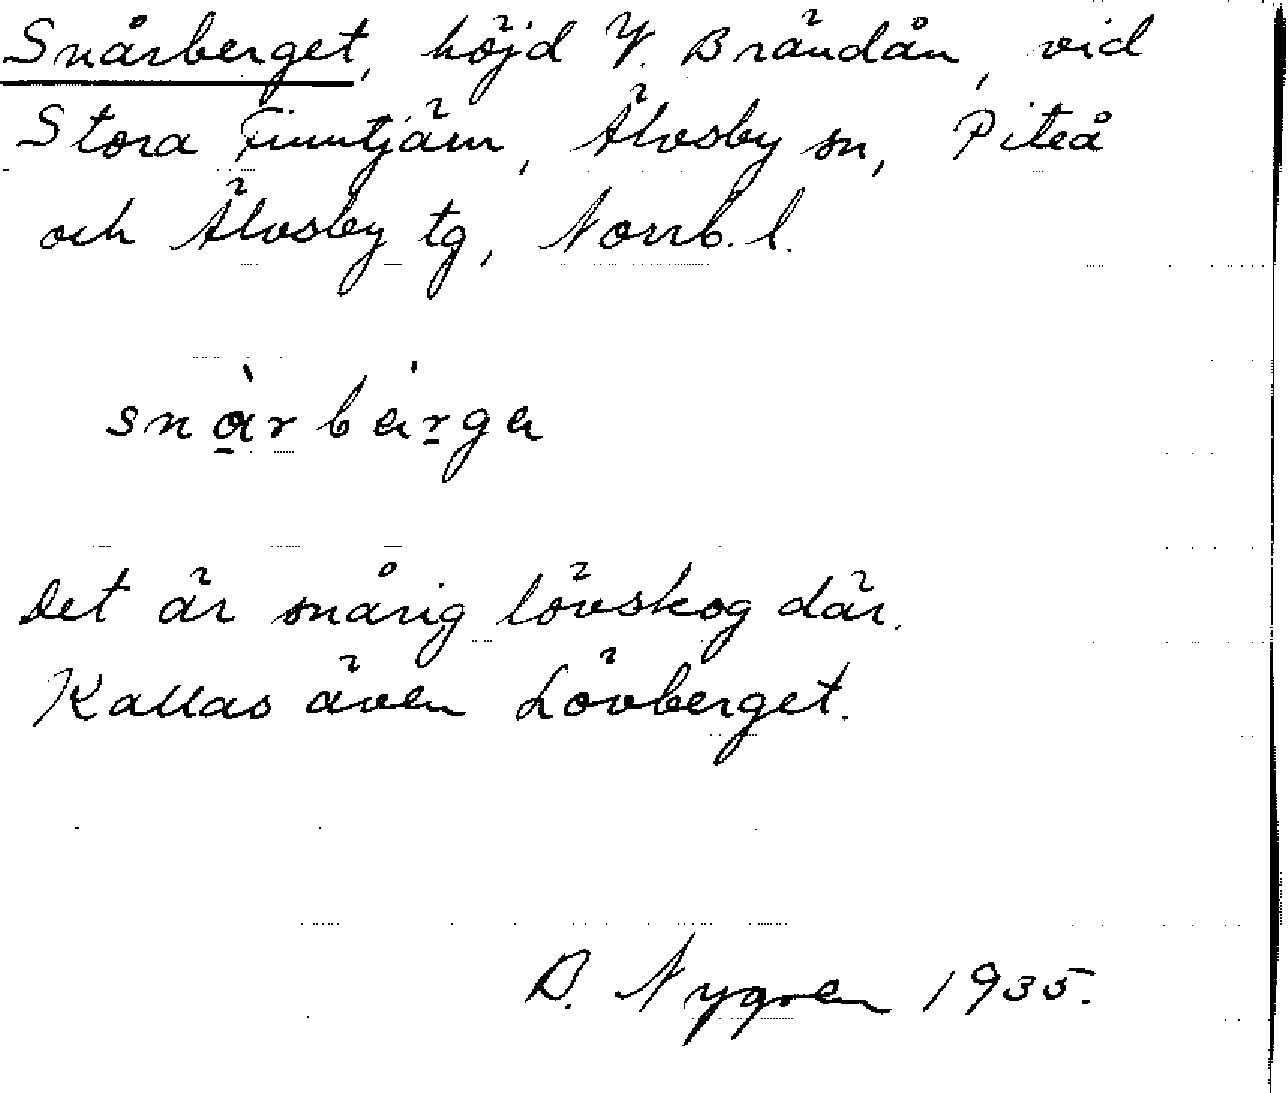 Snårberget, höjd V. Brändån, vid
Stora Finntjärn, Älvsby sn, Piteå
och Älvsby tg, Norrb. l.
snὰ̠rbάr̠ga
Det är snårig lövskog där.
Kallas även Lövberget.
B. Nygren 1935.